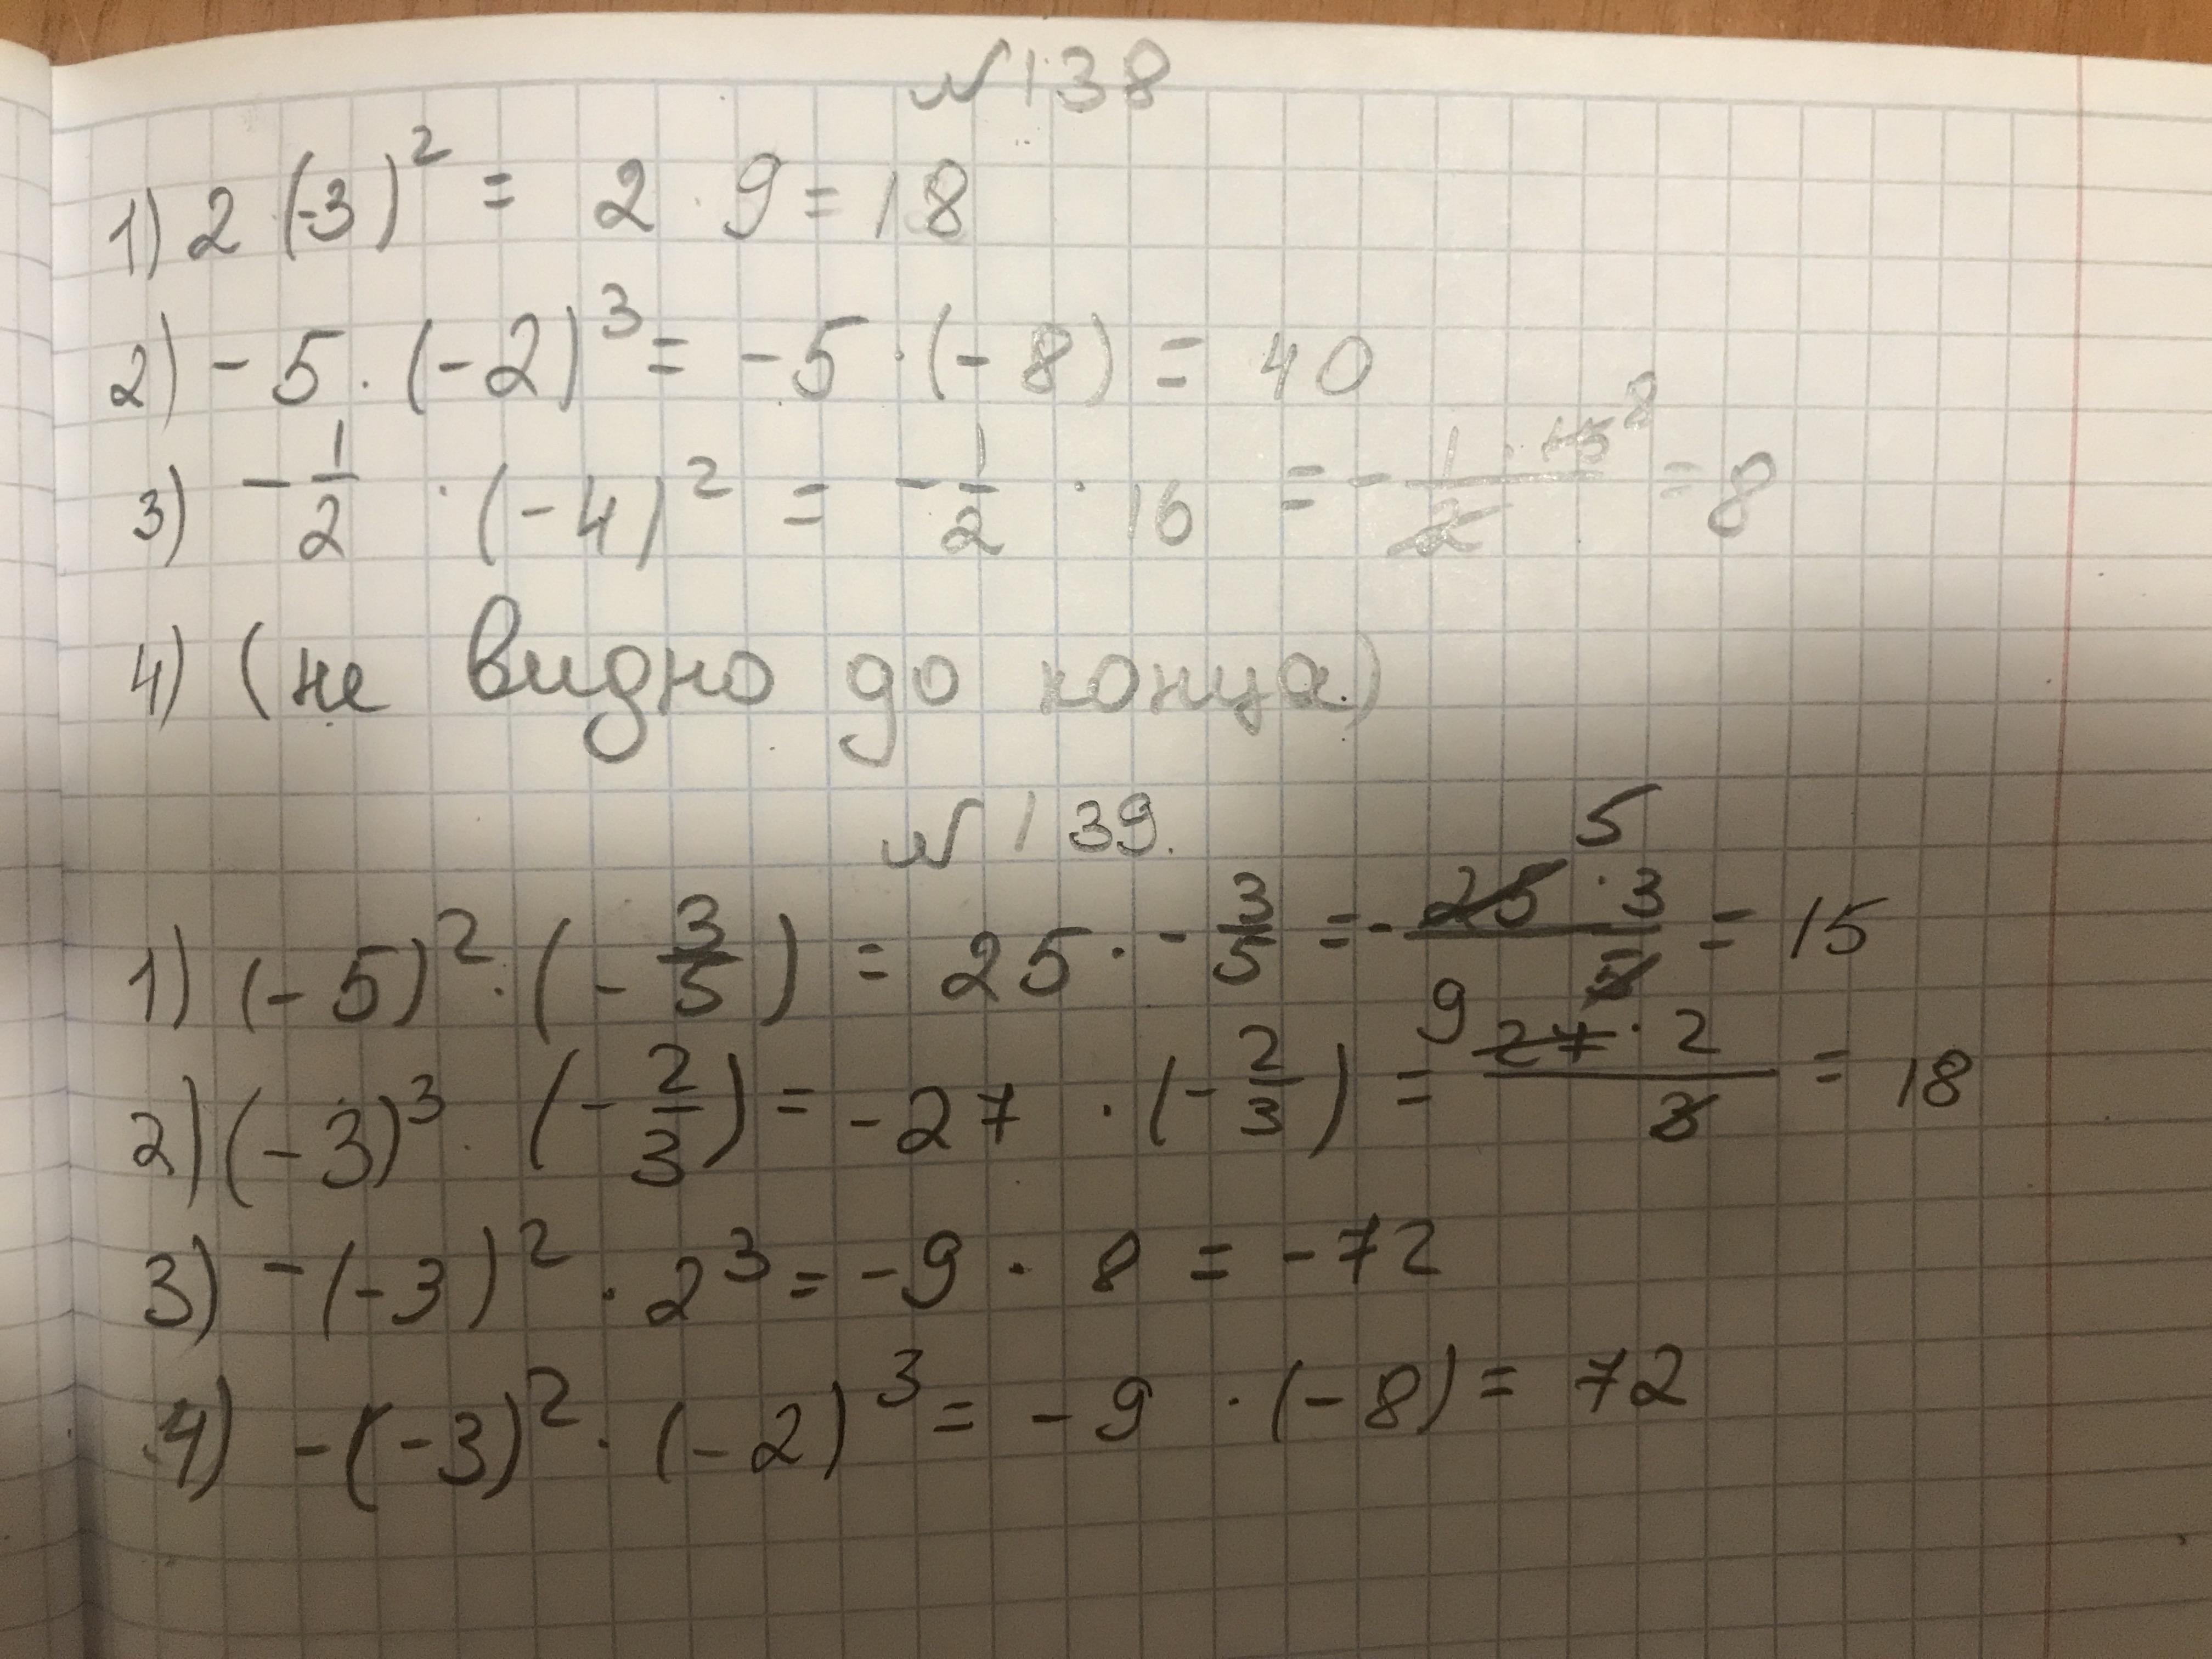 №138
1) 2 (-3)² = 2 · 9 = 18
2) - 5 · (-2)³ = -5 · (-8) = 40
3) - 1/2 · (-4)² = - 1/2 · 16 = - (1 · 16 8)/2 = 8
4) (не видно до конца)
№139.
1) (-5)² · (- 3/5) = 25 · - 3/5 = - (25 5 · 3)/5 = 15
2) (-3)³ · (- 2/3) = -27 · (- 2/3) = (9 27 · 2)/3 = 18
3) -(-3)² · 2³ = -9 · 8 = -72
4) -(-3)² · (-2)³ = -9 · (-8) = 72